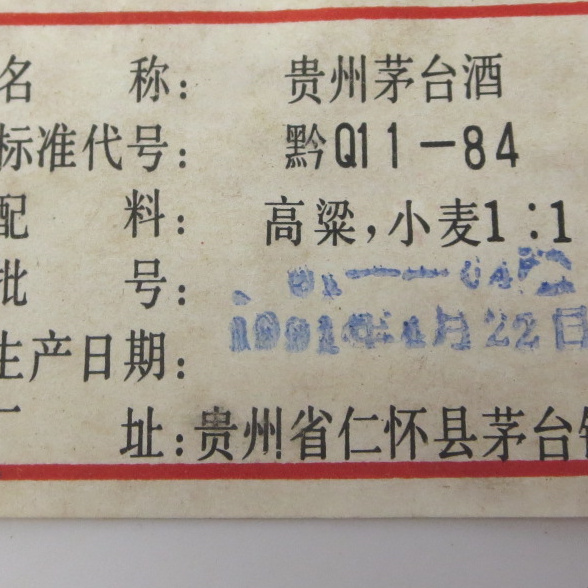 名 称： 贵州茅台酒
标准代号： 黔Q11－84
配 料： 高粱，小麦1：1
批 号：
生产日期： 1991年4月22日
厂 址：贵州省仁怀县茅台镇